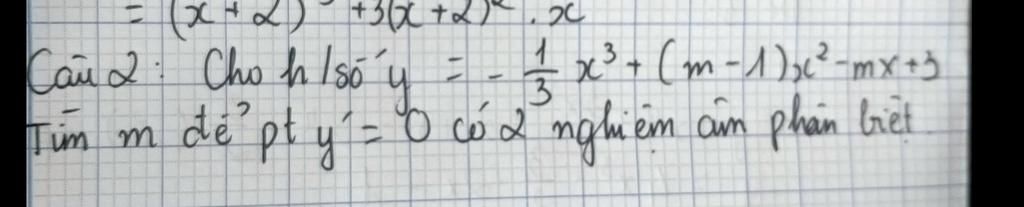 = (x + 2) + 3(x + 2)² . x
Câu 2 : Cho h/số y = - 1/3 x³ + (m - 1)x² - mx + 3
Tìm m để pt y' = 0 có 2 nghiệm âm phân biệt